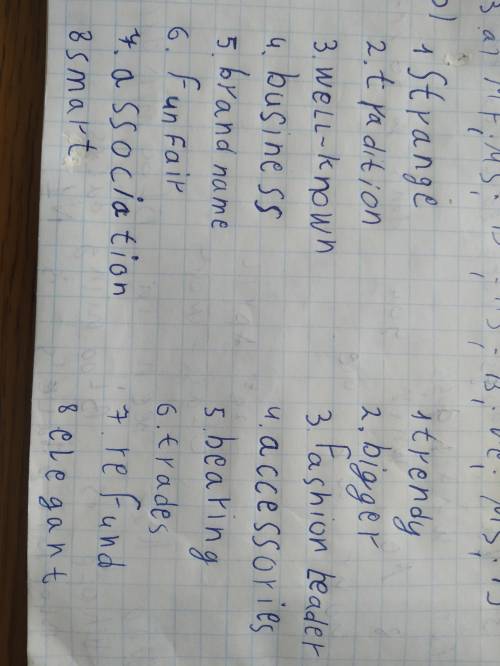 3.a)
b)
1 strange
2. tradition
3. well-known
4. business
5. brand name
6. funfair
7. association
8 smart
1 trendy
2. bigger
3 fashion leader
4. accessories
5. bearing
6. trades
7. refund
8 elegant